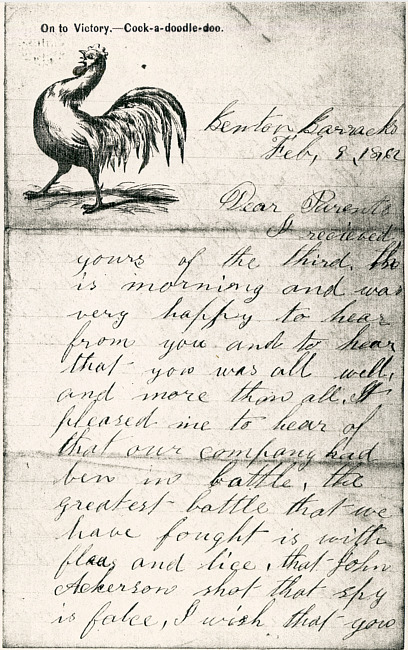 On to Victory.—Cock-a-doodle-doo.
Benton Barracks
Feb, 9, 1862
Dear Parents
I recieved
yours of the third. th
is morning and was
very happy to hear
from you and to hear
that you was all well,
and more than all. It
pleased me to hear of
that our company had
ben in battle, the
greatest battle that we
have fought is with
fleas and lice, that John
Ackerson shot that spy
is falce, I wish that you